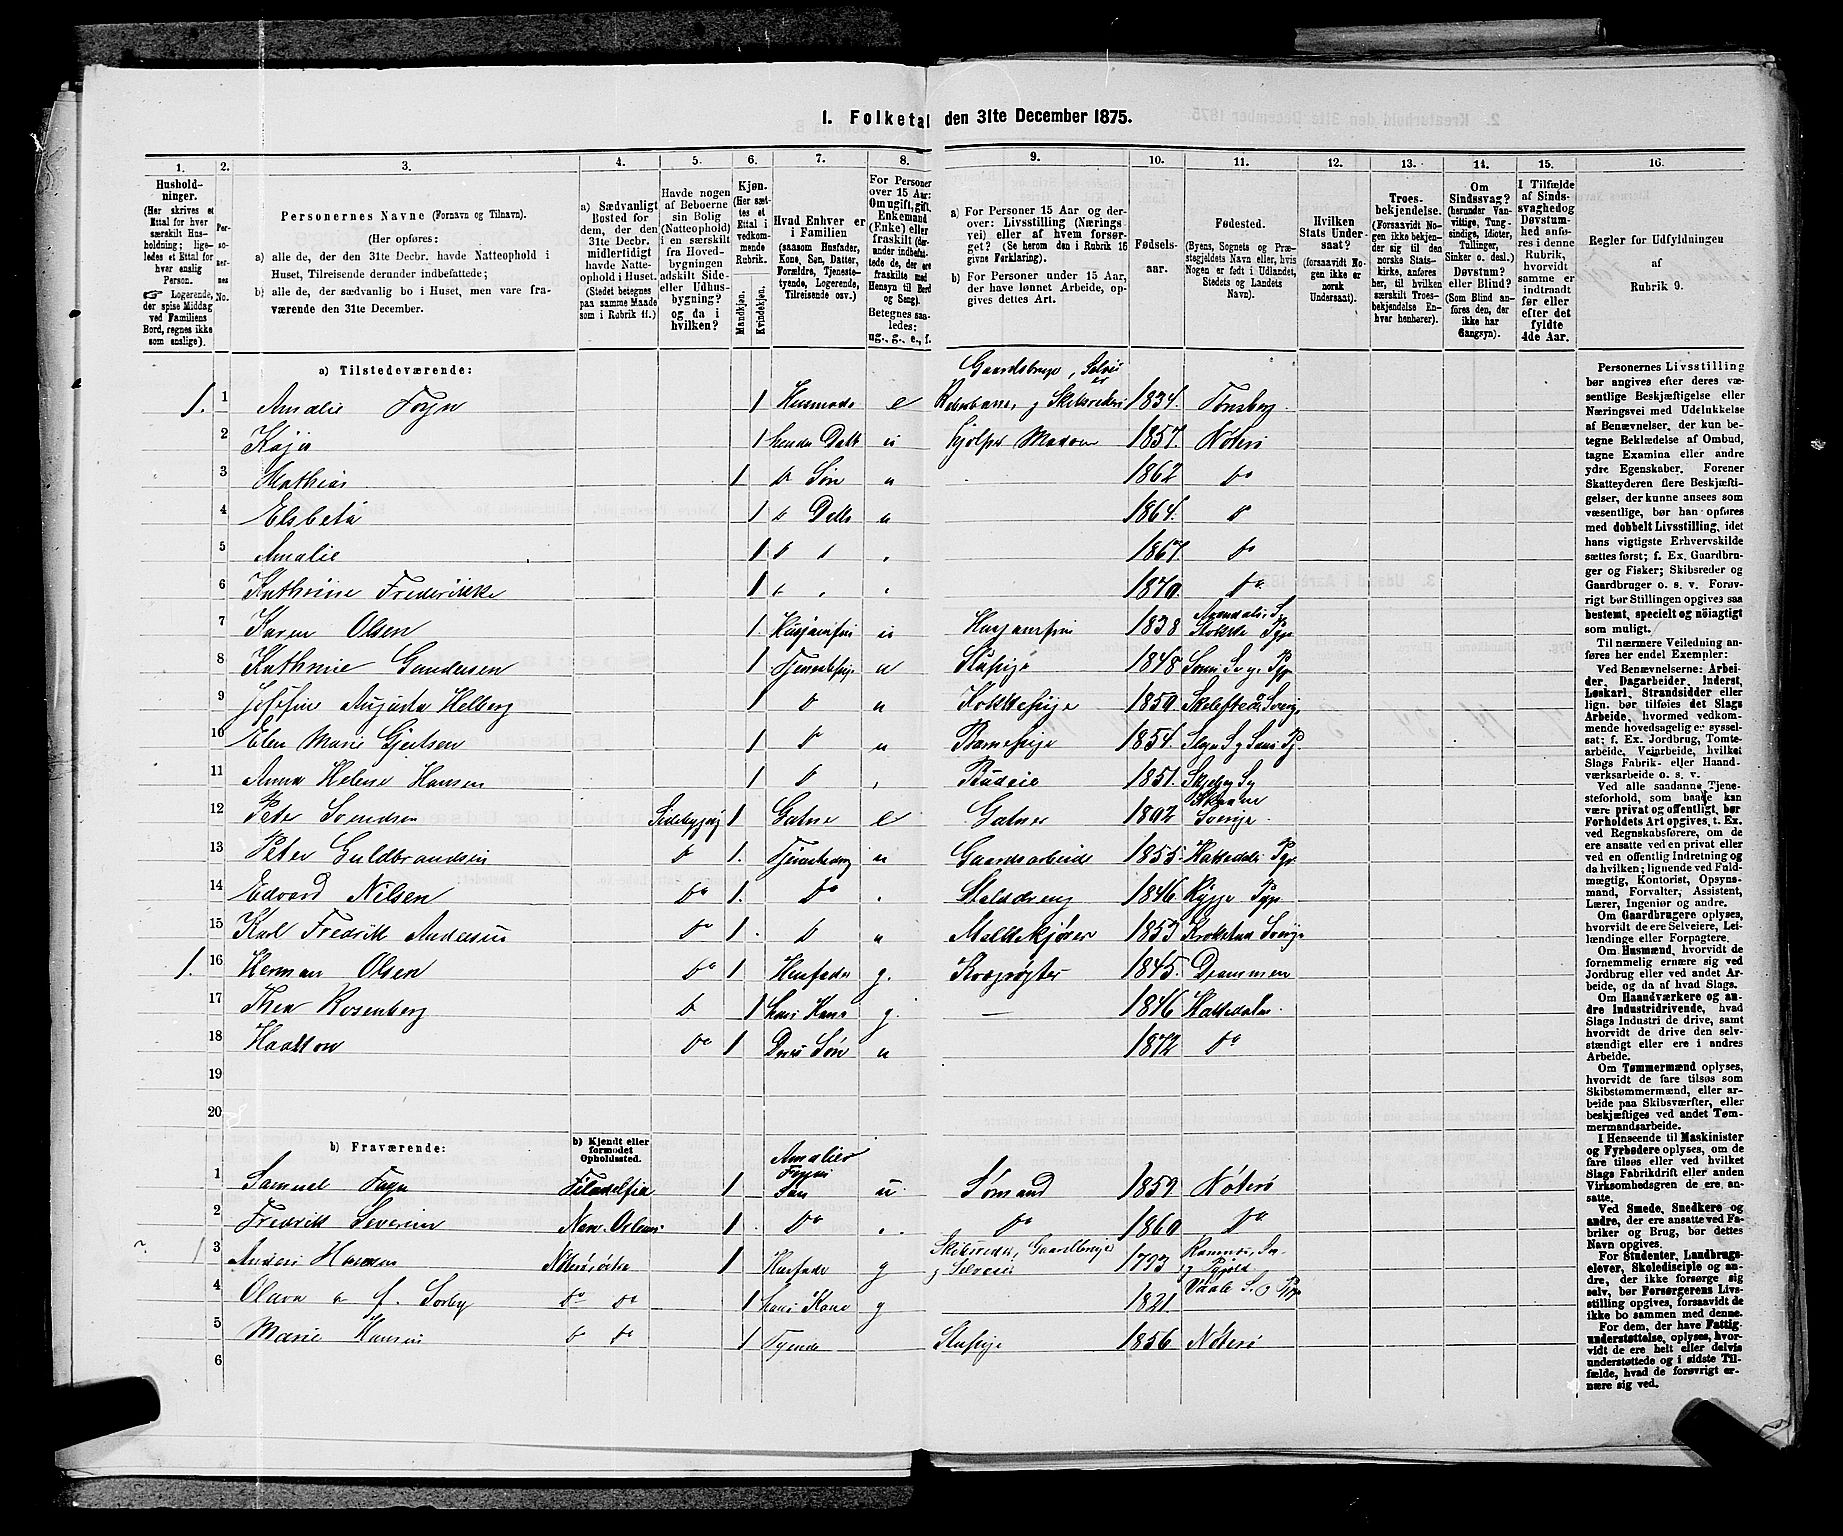 1. Folketal den 31te December 1875.
1. 2. 3. 4. 5. 6. 7. 8. 9. 10. 11. 12. 13. 14. 15. 16.
Hushold-
ninger.
(Her skrives et
Ettal for hver
særskilt Hus-
holdning; lige-
ledes et Ettal for
hver enslig
Person.
☞ Logerende,
der spise Middag
ved Familiens
Bord, regnes ikke
som enslige).
Per-
so-
ner-
nes
No.
Personernes Navne (Fornavn og Tilnavn).
(Her opføres:
a) alle de, der den 31te Decbr. havde Natteophold i
Huset, Tilreisende derunder indbefattede;
b) alle de, der sædvanlig bo i Huset, men vare fra-
værende den 31te December.
a) Sædvanligt
Bosted for
dem, der den
31te Decbr.
midlertidigt
havde Natte-
ophold i Huset.
(Stedet betegnes
paa samme Maade
som i Rubrik 11.)
Havde nogen
af Beboerne
sin Bolig
(Natteophold)
i en særskilt
fra Hoved-
bygningen
adskilt Side-
eller Udhus-
bygning?
og da i
hvilken?
Kjøn.
(Her sæt-
tes et
Ettal i
vedkom-
mende
Rubrik.
Mandkjøn.
Kvindekjøn.
Hvad Enhver er
i Familien
(saasom Husfader,
Kone, Søn, Datter,
Forældre, Tjeneste-
tyende, Logerende,
Tilreisende osv.)
For Personer
over 15 Aar:
Om ugift, gift,
Enkemand
(Enke) eller
fraskilt (der-
under indbefat-
tede de, der ere
fraskilte med
Hensyn til Bord
og Seng).
Betegnes saa-
ledes:
ug., g., e., f.
a) For Personer 15 Aar og der-
over: Livsstilling (Nærings-
vei) eller af hvem forsør-
get? (Se herom den i Rubrik 16
givne Forklaring).
b) For Personer under 15 Aar,
der have lønnet Arbeide, op-
gives dettes Art.
Fødsels-
aar.
Fødested.
(Byens, Sognets og Præ-
stegjeldets Navn eller, hvis
Nogen er født i Udlandet,
Stedets og Landets
Navn).
Hvilken
Stats Under-
saat?
(forsaavidt No-
gen ikke er
norsk
Undersaat).
Troes-
bekjendelse.
(Forsaavidt No-
gen ikke bekjen-
der sig til den
norske Stats-
kirke, anføres
her, til hvilken
særskilt Troes-
bekjendelse En-
hver henhører).
Om
Sindssvag?
(herunder Van-
vittige, Tung-
sindige, Idioter,
Tullinger,
Sinker o. desl.)
Døvstum?
eller Blind?
(Som Blind an-
føres den, der
ikke har
Gangsyn).
I Tilfælde
af Sinds-
svaghed og
Døvstum-
hed anfø-
res i denne
Rubrik,
hvorvidt
samme er
indtraadt
før eller
efter det
fyldte
4de Aar.
Regler for Udfyldningen
af
Rubrik 9.
a) Tilstedeværende:
Gaardsbruge, Selvei
1. 1 Amalie Foyn 1 Husmode e Skibsrederi 1834. Tønsberg
2 Kaja 1 hendes Datt u 1857. Nøterø
3 Mathias 1 Søn u 1862 Do
4 Elsbeta 1 Datte u 1864.
5 Amalie 1 1867. Do
6 Kathrine Frederikke 1 1870. Do
7 Karen Olsen 1 1838 Stokke Pgp
8 Kathrine Gundersen 1 u Stuepige 1848
9 Josefine Augusta Helberg 1 u Kokkepige 1850 Sverige
10 Elen Marie Gjertsen 1 u Barnepige 1854.
11 Anna Helene Hansen 1 Budeie 1851.
12 Peter Svendsen Sidebygnig 1 Gatner e Gatner 1802 Skaane Sverige
13 Peter Guldbrandsen 1. u Gaardsarbeide 1855
14 Edvard Nilsen Do 1. Do Stalddreng 1846 Rygge Pgp
15 Karl Fredrik Andersen Do 1 u Melkekjører 1853 Krokstad Sverige
1. 16 Herman Olsen Do 1 Husfader g. Kvægrøgter 1845. Drammen
17 Thea Rosenberg 1 hans Kone g. — 1846
18 Haakon Do 1 Deres Søn u 1872 Do
19
20
b) Fraværende:
b) Kjendt eller
formodet
Opholdssted.
Amalies
Foyns
1 Samuel Foyn Filadelfia 1 Søn u Sømand 1859 Nøterø
2 Fredrik Severin New Orleans 1 Do Do 1860 Do
1 3 Anders Hansen 1 Husfade g Skibsreder, Gaardbruge og Selveier 1793
4 Olava Sørby Do Do 1 hans Kone g 1821 Vaale S. o Pgp
5 Marie Hansen Do 1 Tyende Stuepige 1856 Nøterø
6
Personernes Livsstilling
bør angives efter deres væ-
sentlige Beskjæftigelse eller
Næringsvei med Udelukkelse
af Benævnelser, der kun be-
tegne Beklædelse af Ombud,
tagne Examina eller andre
ydre Egenskaber. Forener
Skatteyderen flere Beskjæfti-
gelser, der kunne ansees som
væsentlige, bør han opføres
med dobbelt Livsstilling, idet
hans vigtigste Erhvervskilde
sættes først; f. Ex. Gaardbru-
ger og Fisker; Skibsreder og
Gaardbruger o. s. v. Forøv-
rigt bør Stillingen opgives saa
bestemt, specielt og nöiagtigt
som muligt.
Til nærmere Veiledning an-
føres her endel Exempler:
Ved Benævnelserne: Arbei-
der, Dagarbeider, Inderst,
Løskarl, Strandsidder eller
lign. bør tilføies det Slags
Arbeide, hvormed vedkom-
mende hovedsagelig er syssel-
sat; f. Ex. Jordbrug, Tomte-
arbeide, Veiarbeide, hvilket
Slags Fabrik- eller Haand-
værksarbeide o. s. v.
Ved alle saadanne Tjene-
steforhold, som baade kan
være privat og offentligt, bør
Forholdets Art opgives, t. Ex.
ved Regnskabsførere, om de
ere ansatte ved en privat eller
ved en offentlig Indretning og
da hvilken; lignende ved Fuld-
mægtig, Kontorist, Opsyns-
mand, Forvalter, Assistent,
Lærer, Ingeniør og andre.
Om Gaardbrugere oplyses,
hvorvidt de ere Selveiere, Lei-
lændinge eller Forpagtere.
Om Husmænd, hvorvidt de
fornemmelig ernære sig ved
Jordbrug eller ved andet Ar-
beide, og da af hvad Slags.
Om Haandværkere og an-
dre Industridrivende, hvad
Slags Industri de drive, samt
hvorvidt de drive den selv-
stændigt eller ere i andres
Arbeide.
Om Tømmermænd oplyses,
hvorvidt de fare tilsøs som
Skibstømmermænd, eller ar-
beide paa Skibsværfter, eller
beskjæftiges ved andet Tøm-
mermandsarbeide.
I Henseende til Maskinister
og Fyrbødere oplyses, om de
fare tilsøs eller ved hvilket
Slags Fabrikdrift eller anden
Virksomhedsgren de ere an-
satte.
Ved Smede, Snedkere og
andre, der ere ansatte ved Fa-
briker og Brug, bør dettes
Navn opgives.
For Studenter, Landbrugs-
elever, Skoledisciple og an-
dre, der ikke forsørge sig
selv, bør Forsørgerens Livs-
stilling opgives, forsaavidt de
ikke bo sammen med denne.
For dem, der have Fattig-
understøttelse, oplyses, hvor-
vidt de ere helt eller delvis
understøttede og i sidste Til-
fælde, hvad de forøvrigt er-
nære sig ved.